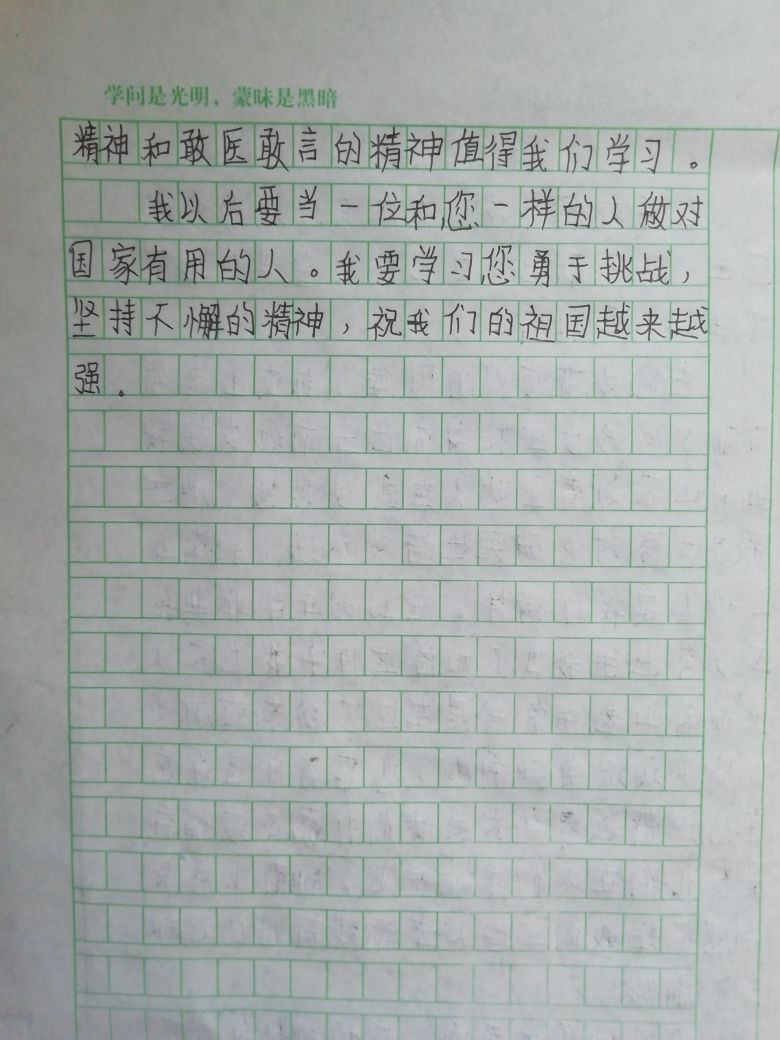 学问是光明，蒙昧是黑暗
精神和敢医敢言的精神值得我们学习。
我以后要当一位和您一样的人做对
国家有用的人。我要学习您勇于挑战，
坚持不懈的精神，祝我们的祖国越来越
强。